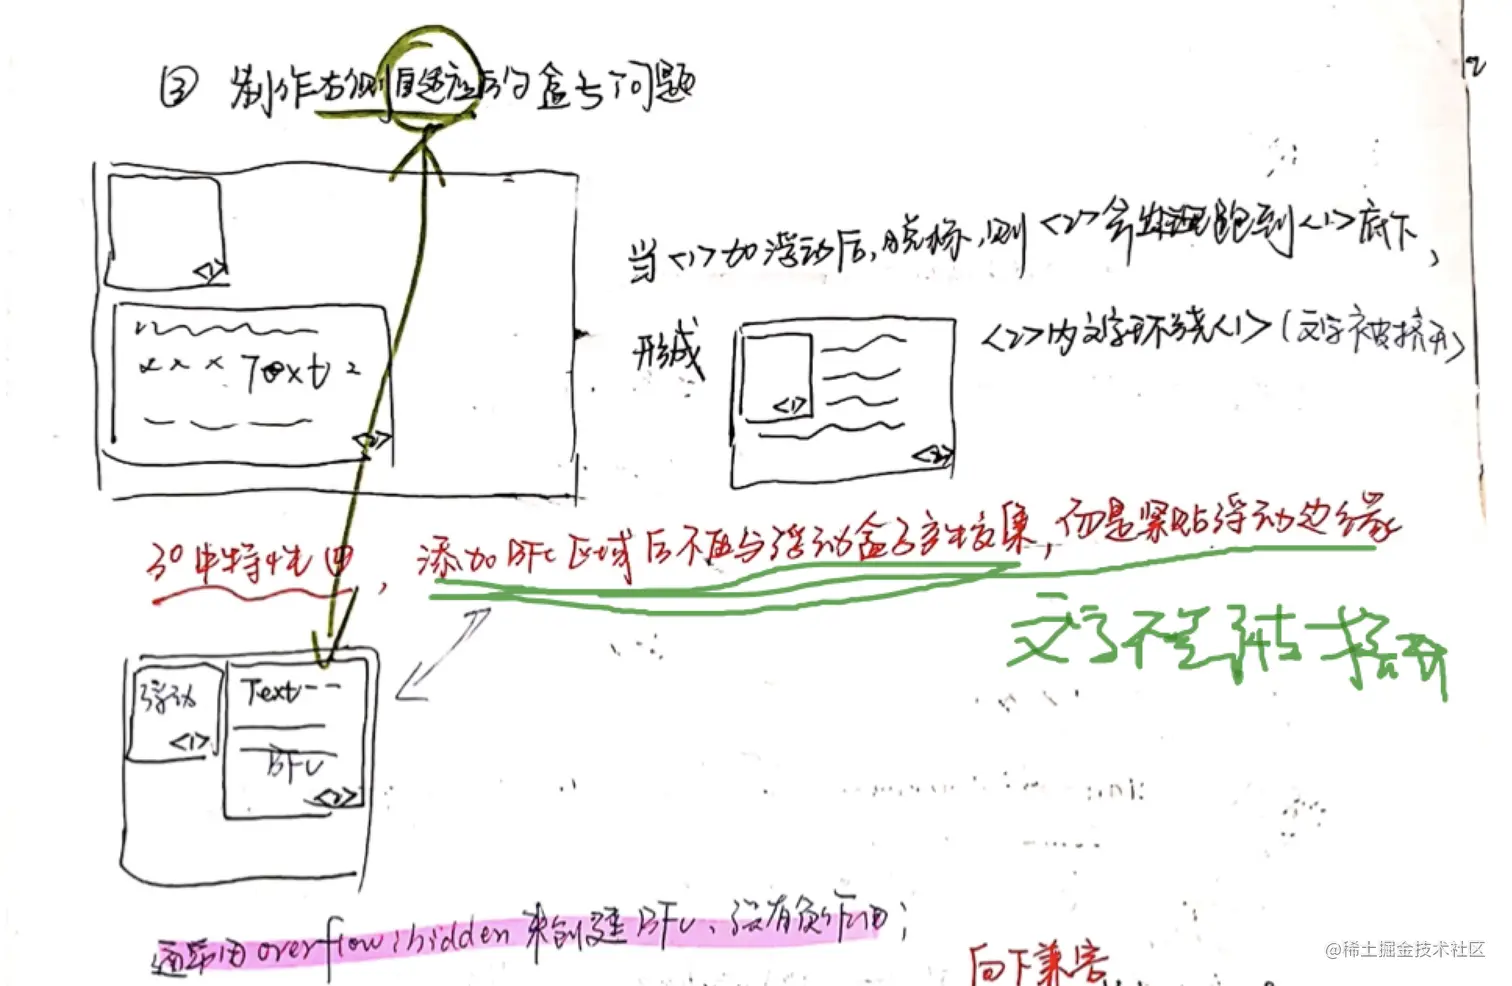 ③ 制作右侧自适应的盒子问题
<1>
Text
<2>
当<1>加浮动后,脱标,则<2>会出现跑到<1>底下,
形成
<1>
<2>
<2>内文字环绕<1>(文字被挤开)
,添加BFC区域后不再与浮动盒子产生交集,而是紧贴浮动边缘
文字不会被挤开
浮动
<1>
Text--
BFC
<2>
通常用overflow:hidden来创建BFC、没有负作用;
向下兼容
@稀土掘金技术社区